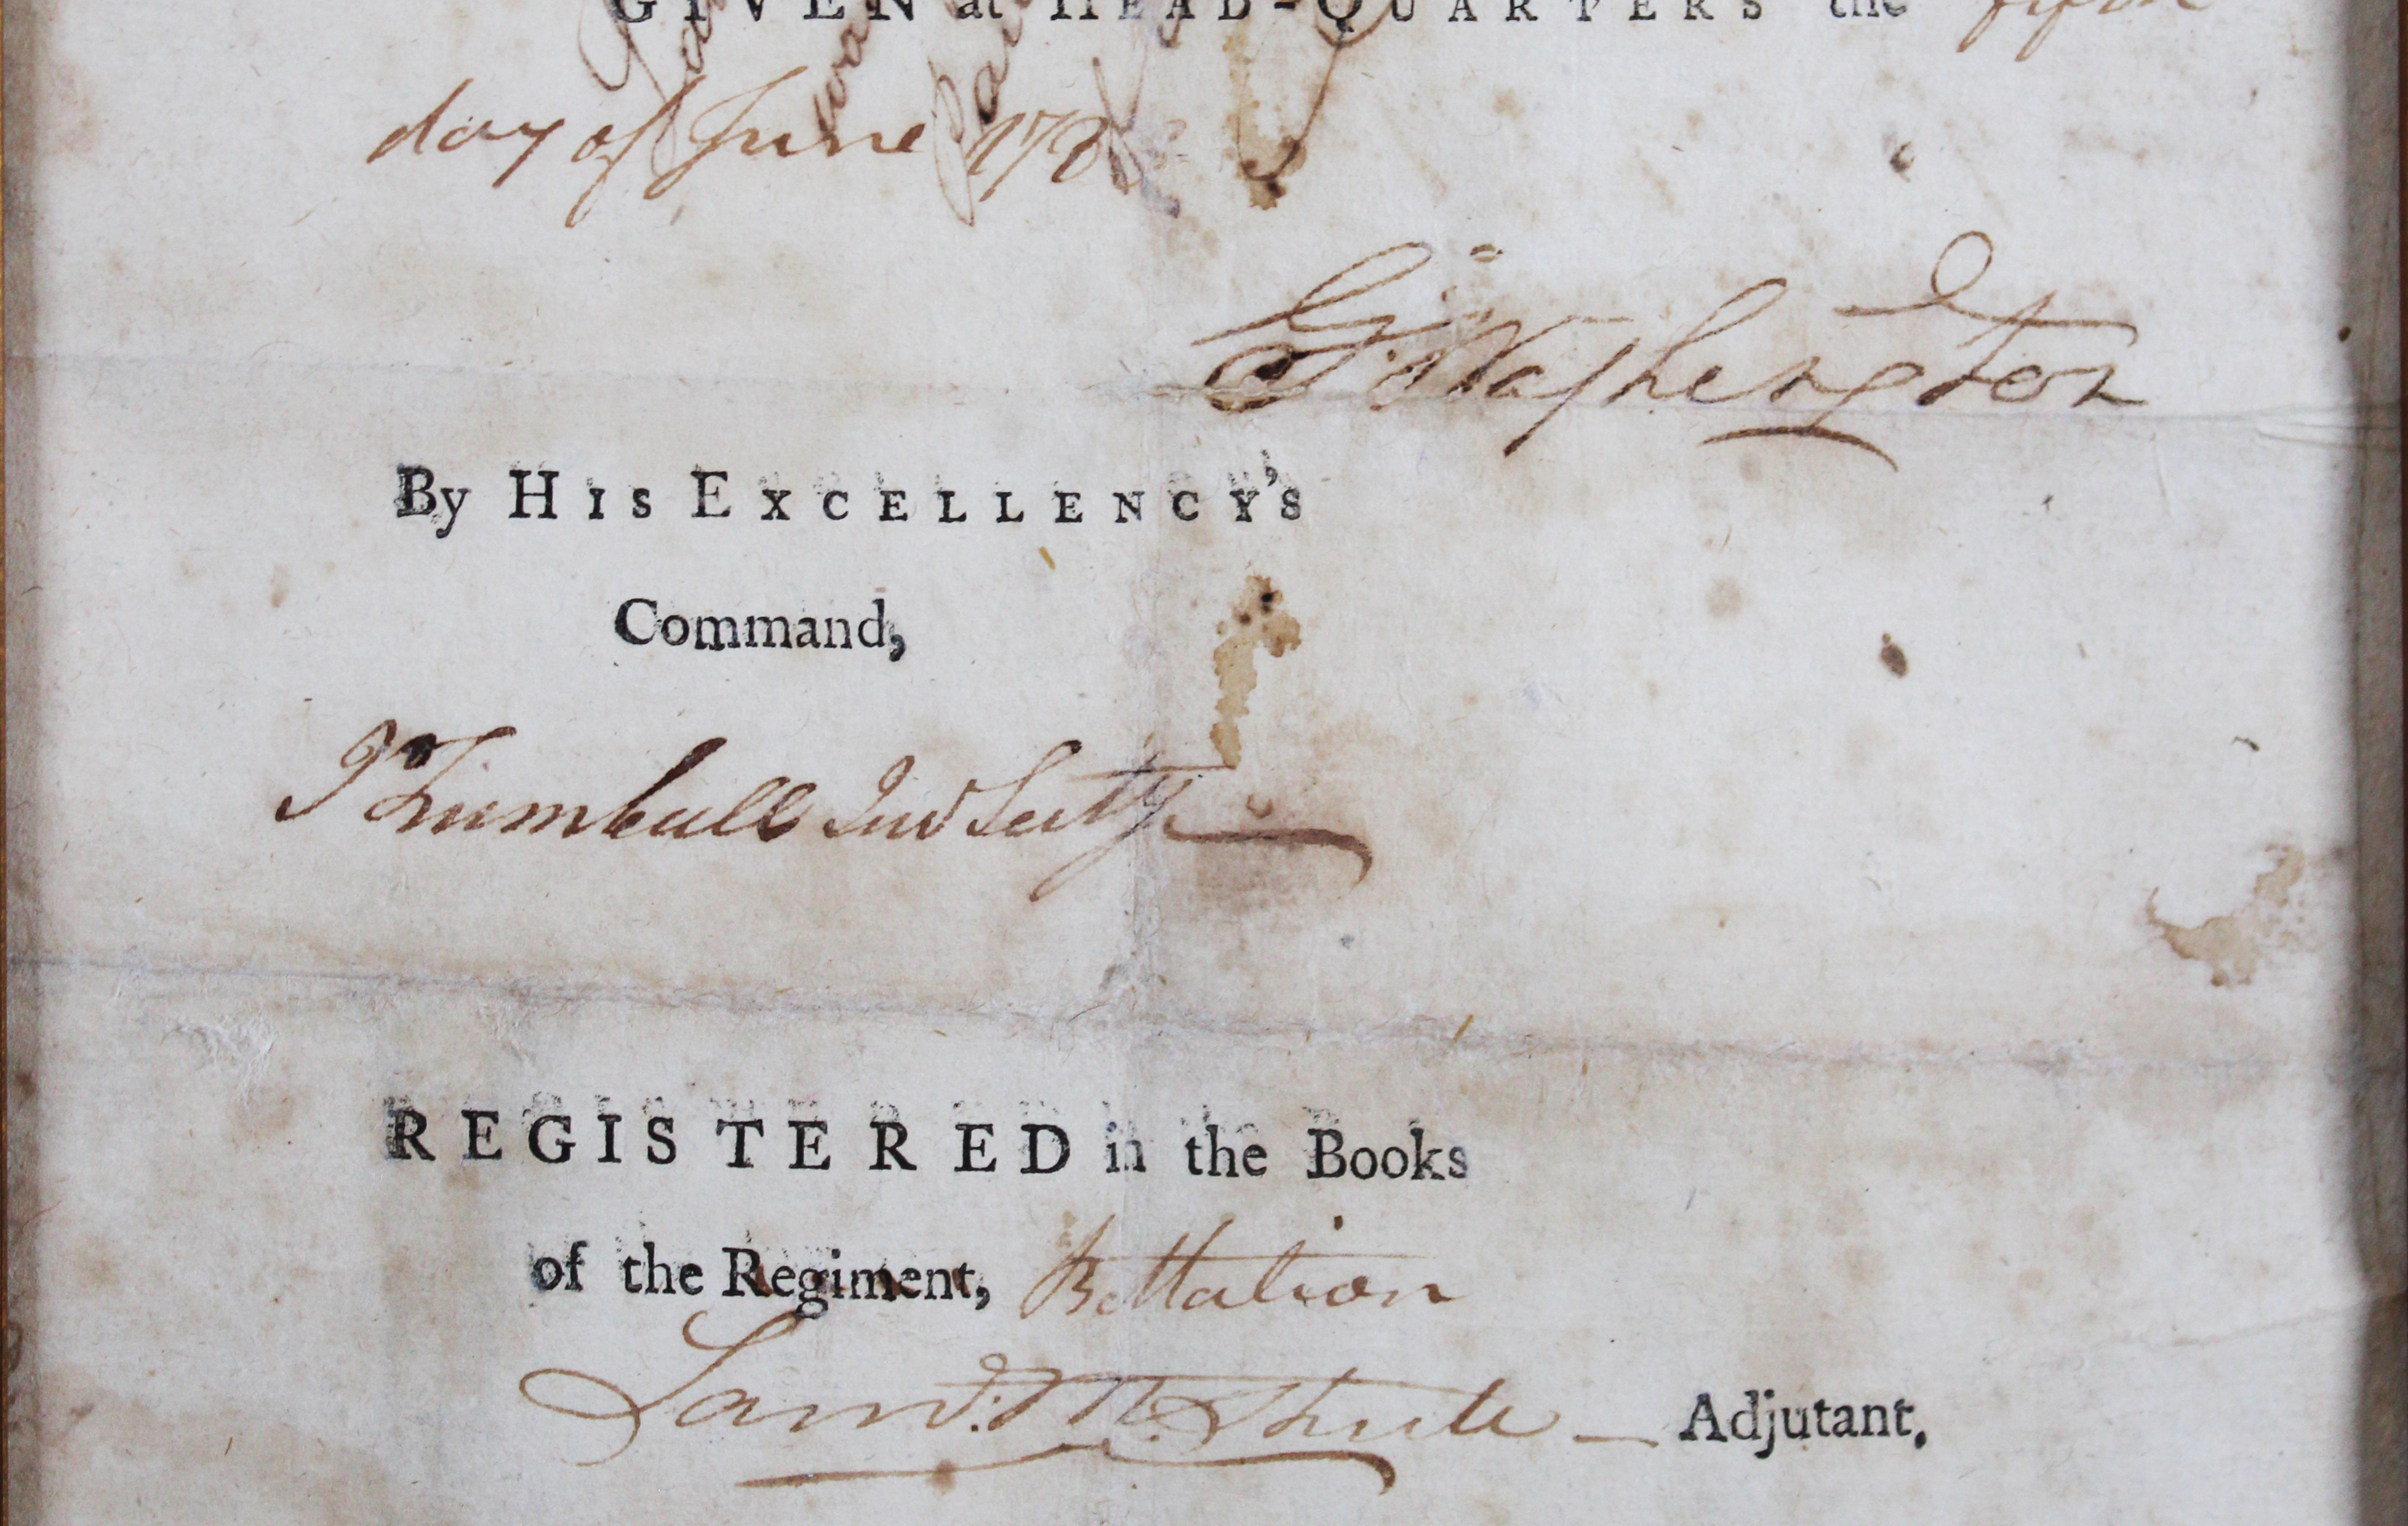 GIVEN at HEAD-QUARTERS the
day of June 178
G:Washington
By HIS EXCELLENCY'S
Command,
J Trumbull Jun Secty
REGISTERED in the Books
of the Regiment, Battalion
Adjutant,